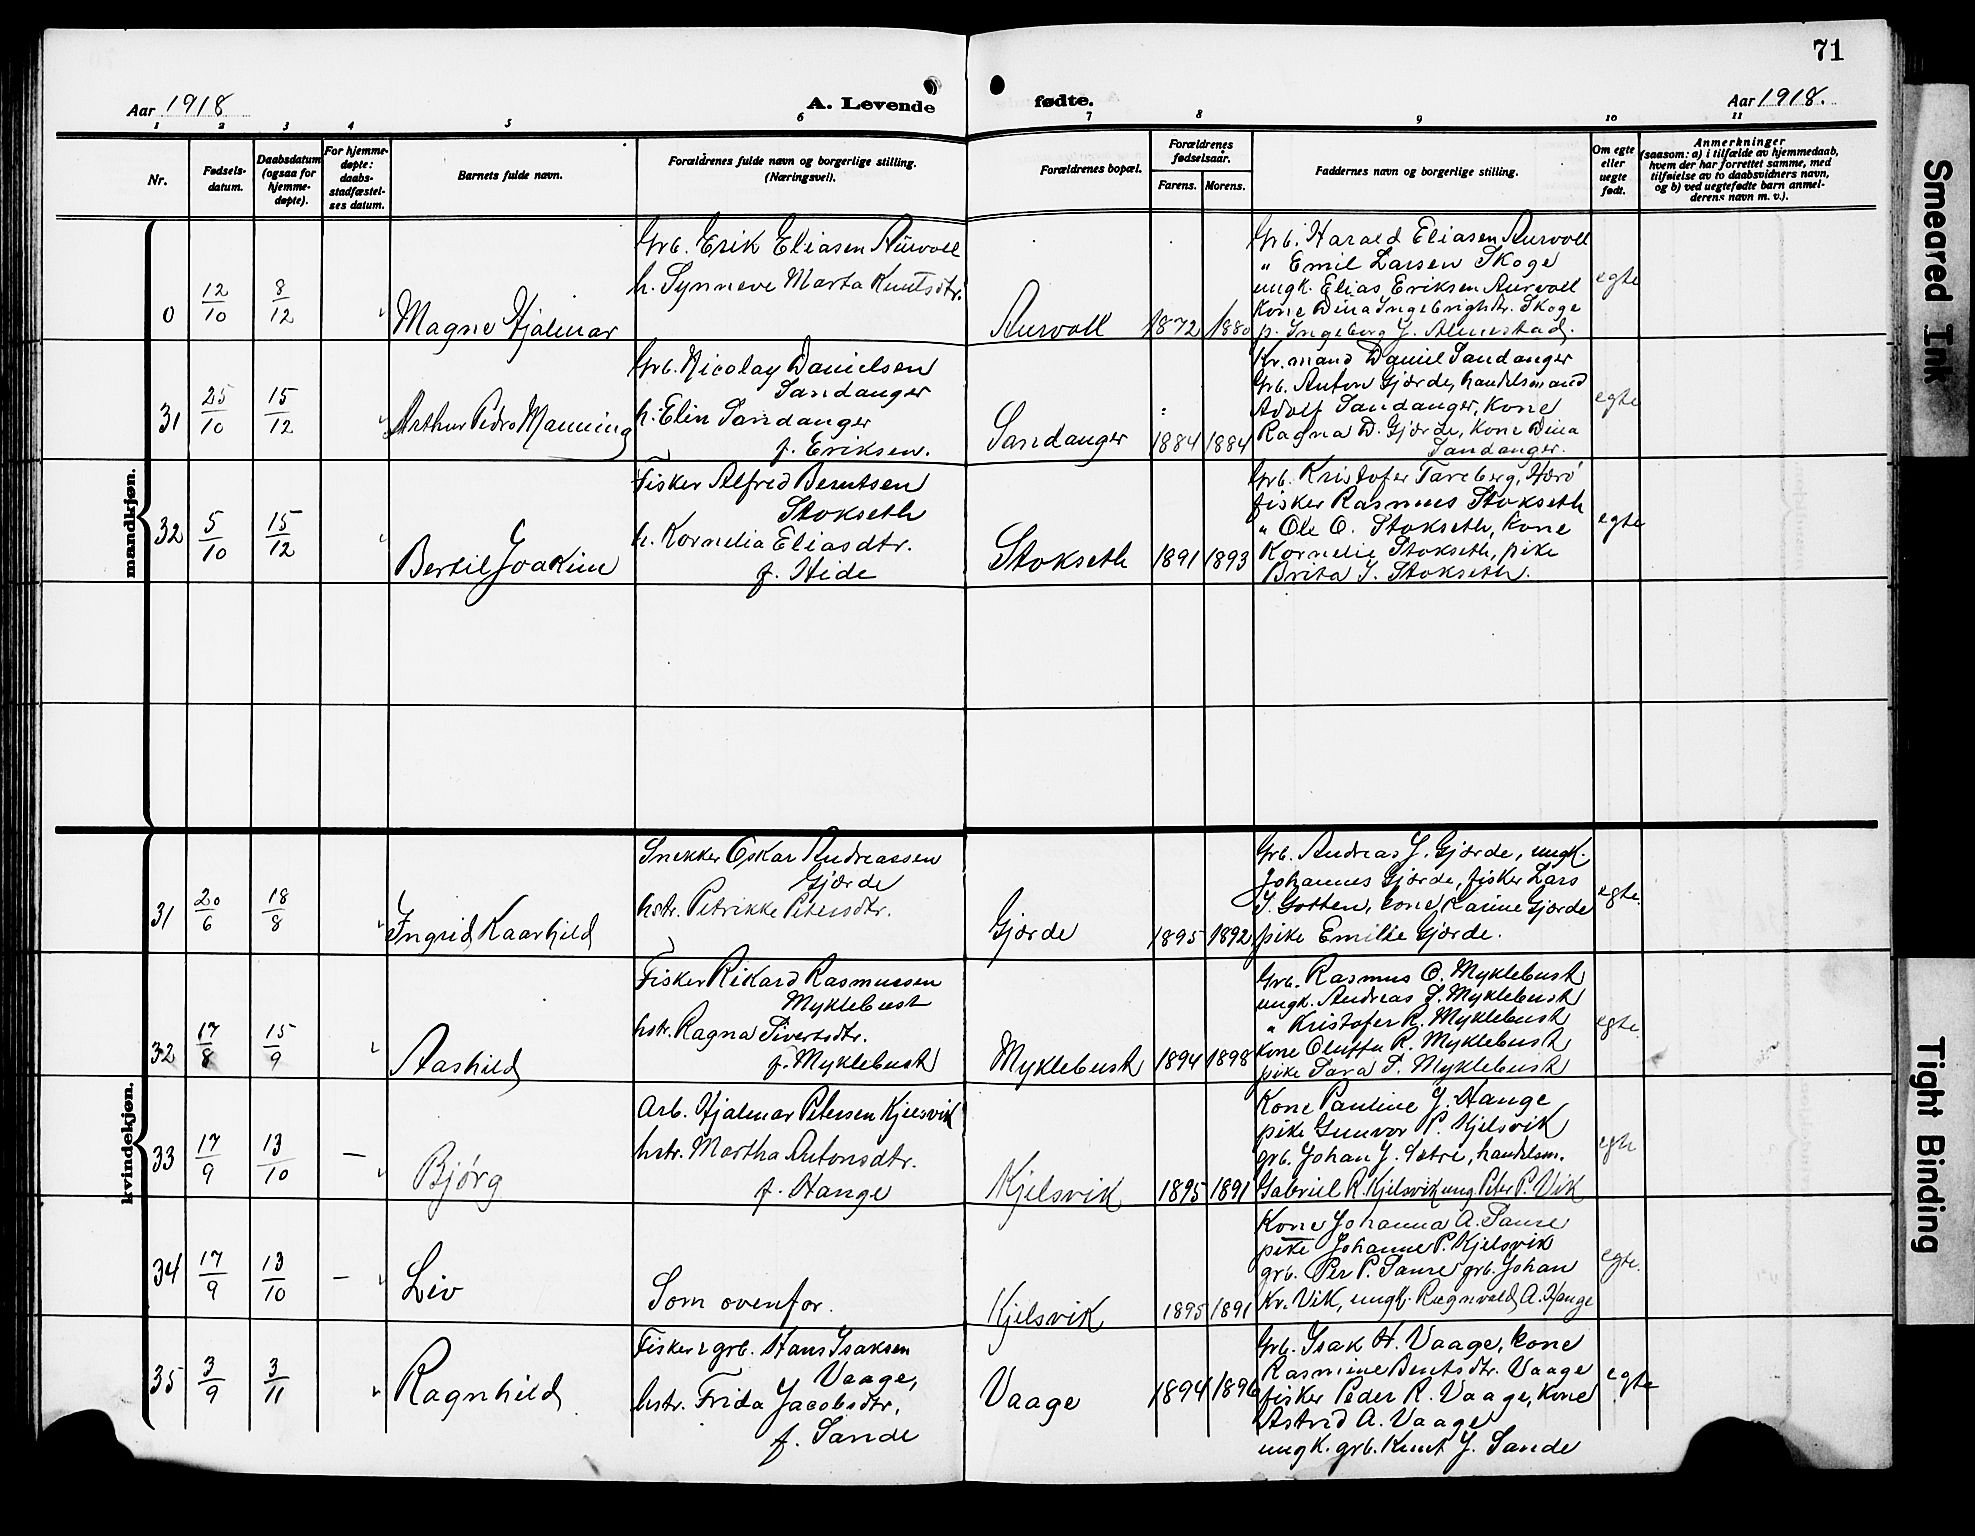 71
Aar 1918
A. Levende
fødte.
Aar 1918.
1 2 3 4 5 6 7 8 9 10 11
Nr.
Fødsels-
datum.
Daabsdatum
(ogsaa for
hjemme-
døpte).
For hjemme-
døpte:
daabs-
stadfæstel-
ses datum.
Barnets fulde navn.
Forældrenes fulde navn og borgerlige stilling.
(Næringsvei).
Forældrenes bopæl.
Forældrenes
fødselsaar.
Farens. Morens.
Faddernes navn og borgerlige stilling.
Om egte
eller
uegte
født.
Anmerkninger
(saasom: a) i tilfælde av hjemmedaab,
hvem der har forrettet samme, med
tilføielse av to daabsvidners navn,
og b) ved uegtefødte barn anmel-
derens navn m. v.).
mandkjøn.
0 12/10 8/12 Magne Hjalmar
Grb. Erik Eliasen Aurvoll
h. Synneve Marta Knutsdtr.
Aurvoll 1872 1880
Grb. Harald Eliasen Aurvoll
" Emil Larsen Skoge
ungk. Elias Eriksen Aurvoll
Kone Dina Ingebrightdtr. Skoge
p. Ingeborg J. Almestad.
egte
31 25/10 15/12 Arthur Pedro Manning
Grb. Nicolay Danielsen
Sandanger
h. Elin Sandanger
f. Eriksen.
Sandanger 1884 1884
Kr.mand Daniel Sandanger
Grb. Anton Gjærde, handelsmand
Adolf Sandanger, Kone
Ragna D. Gjærde, Kone Dina
Sandanger.
egte
32 5/10 15/12 Bertil Joakim
Fisker Alfred Berntsen
Stokseth
h. Kornelia Eliasdtr.
f. Hide
Stokseth 1891 1893
Grb. Kristofer Tareberg, Herö
fisker Rasmus Stokseth
" Ole O. Stokseth, Kone
Kornelie Stokseth, pike
Brita J. Stokseth.
egte
kvindekjøn.
31 20/6 18/8 Ingrid Kaarhild
Snekker Oskar Andreassen
Gjærde
hstr. Petrikke Petersdtr.
Gjærde 1895 1892
Grb. Andreas J. Gjærde, ungk.
Johannes Gjærde, fisker Lars
J. Gotten, kone Karine Gjærde
pike Emilie Gjærde.
egte.
32 17/8 15/9 Aashild
Fisker Rikard Rasmussen
Myklebust
hstr. Ragna Sivertsdtr.
f. Myklebust
Myklebust 1894 1898
Grb. Rasmus O. Myklebust
ungk. Andreas S. Myklebust
" Kristofer R. Myklebust
Kone Oluffa R. Myklebust
pike Sara S. Myklebust
egte.
33 17/9 13/10 — Bjørg
Arb. Hjalmar Petersen Kjelsvik
hstr. Martha Antonsdtr.
f. Hange
Kjelsvik 1895 1891
Kone Pauline J. Hange
pike Gunvor P. Kjelsvik
grb. Johan J. Sætre, handelsm.
Gabriel R. Kjelsvik ung. Peter P. Vik
egte
34 17/9 13/10 — Liv
Som ovenfor.
Kjelsvik 1895 1891
Kone Johanna A. Saure
pike Johanne P. Kjelsvik
grb. Per P. Saure grb. Johan
Kr. Vik, ungk. Ragnvald A. Hange
egte.
35 3/9 3/11 Ragnhild
Fisker & grb. Hans Isaksen
Vaage,
hstr. Frida Jacobsdtr,
f. Sande
Vaage 1894 1896
Grb. Isak H. Vaage, kone
Rasmine Berntsdtr. Vaage
fisker Peder R. Vaage, Kone
Astrid A. Vaage
ungk. grb. Knut J. Sande
egte
Smeared Ink
Tight Binding